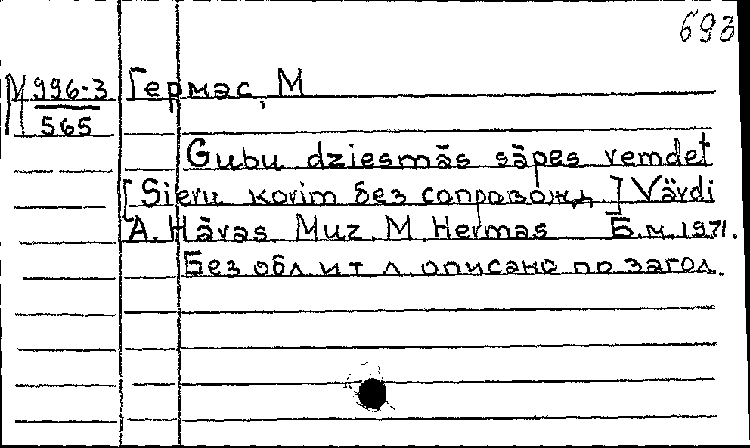 693
М 996-3
565
Гермас, М
Gubu dziesmās sāpes remdet
[Sieru korim без сопровожд.] Vārdi
A. Hāvas Muz. M. Hermas Б.м. 1971.
Без обл. и т. л. описано по загол.